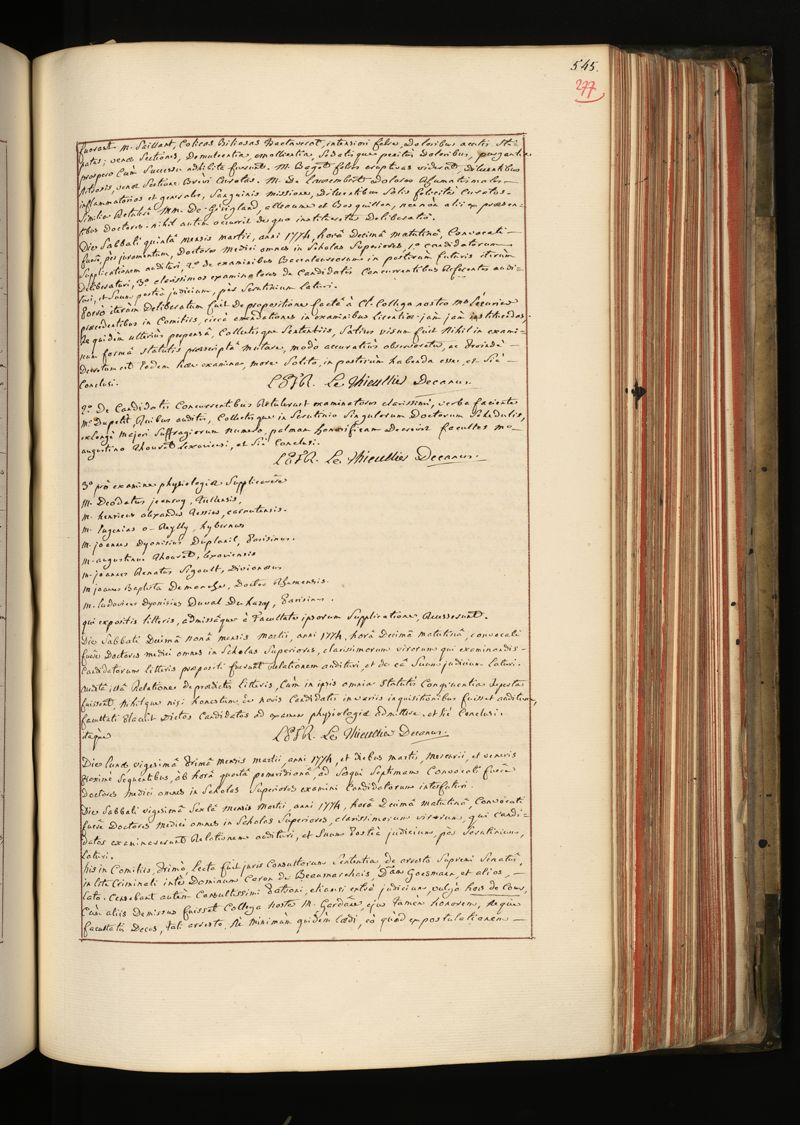 545.
277
fuerant M. Paillart, Colicas Biliosas tractaverat, intensiori febre, doloribus acutis sti-
patas; venae sectiones, Demulcentia, emollientia, Sedatique paulis doloribus, purgantia
prospero cum Successu adhibita fuerunt. M. Bagot febres eruptivas viderat, diluentibus
venae Sectione Brevi Curatas. M. De dolores Rhumatismales
inflammatorios et generales, Sanguinis missione, Diluentibus Solis feliciter Curatos.
Similia Retulere MM. De Gevigland, alleaume et Bosquillon, nec non alii ex praesen-
tibus doctores. nihil autem occurrit de quo institueretur Deliberatio.
Die Sabbati quintâ mensis martii, anni 1774, horâ Decimâ matutinâ, Convocati
fuere, per juramentum, Doctores Medici omnes in Scholas Superiores, 1.o candidatorum
Supplicationem audituri, 2.o de examinibus Baccalaureorum in posterum futuris iterum
deliberaturi, 3.o clarissimos examinatores de Candidatis Concurrentibus Referentes audi-
turi, et Suum posteà judicium, per Scrutinium Laturi.
Porrò iterùm Deliberatum fuit de propositione factâ à Cl. Collega nostro Mo Lezurier
praecedentibus in Comitiis, circà emendationes in examinibus Licentiae jam jam instituendas,
Re quidem ulteriùs perpensâ, Collectisque Sententiis, Satius visum fuit Nihil in exami-
num formâ statutis praescriptâ mutare, modò accuratiùs observetur, ac Deindè
Decretum est eodem hoc examina, more Solito, in posterùm habenda esse, et Sic
Conclusi.
LEFR. Le Thieullier Decanus.
2.o De Candidatis Concurrentibus Retulerunt examinatores clarissimi, verba faciente
Mo Dupetit, Quibus auditis, Collectisque in Scrutinio Singulorum Doctorum Schedulis,
exlongè majori Suffragiorum numero, palmam honorificam Decrevit facultas Mo
augustino Thouret Lexoviensi, et Sic Conclusi.
LEFR. Le Thieullier Decanus.
3.o prò examine physiologiae Supplicavere
M. Deodatus jeanroy, Tullensis,
M. henricus alexander Tessier, carnutensis.
M. Eugenius o-Reylly, hybernus
M. joannes Dyonisius Duplanil, Parisinus.
M. augustinus Thouret, Lexoviensis
M. joannes Renatus Sigault, Divionaeus
M joannes Baptista Demonche, Doctor Rhemensis.
M. Ludovicus Dyonisius Duval Duhazey, Parisinus.
qui expositis litteris, admissâque à Facultate ipsorum Supplicatione, Recesserunt.
Die Sabbati Decimâ nonâ mensis Martii, anni 1774, horâ Decimâ matutinâ, convocati
fuere Doctores medici omnes in Scholas Superiores, clarissimorum virorum qui examinandis
Candidatorum litteris praepositi fuerunt Relationem audituri, et de eâ Suum judicium Laturi.
auditâ istâ Relatione de praedictis litteris, Cum in ipsis omnia Statutis Congruentia Reperta
fuissent, Nihilque nisi honestum de novis Candidatis in variis inquisitionibus fuisset auditum,
facultati Placuit Dictos Candidatos ad examen physiologiae admittere. et Sic Conclusi.
itaque LEFR. Le Thieullier Decanus.
Die Lunae vigesimâ Primâ mensis martii, anni 1774, et Diebus martis, Mercurii, et veneris
proximè Sequentibus, ab horâ quartâ pomeridianâ ad Sesqui Septimam Convocati fuere
doctores Medici omnes in Scholas Superiores examini Candidatorum interfuturi.
Die Sabbati vigesimâ Sextâ Mensis Martii, anni 1774, horâ Decimâ matutinâ, Convocati
fuere Doctores Medici omnes in Scholas Superiores, clarissimorum virorum, qui candi-
datos examinaverunt Relationem audituri, et Suum Posteà judicium, per Scrutinium,
Laturi.
his in Comitiis, Primò Lecta fuit juris Consultorum Sententia de arresto Supremi Senatûs,
in lite Criminali inter Dominum Caron de Beaumarchais, Dam Goesmann, et alios,
Lato. Censebant autem Consultissimi Patroni, etiamsi extrà judicium, vulgò hors de Cour,
Cum aliis Demissus fuisset Collega noster M. Gardane, ejus tamen honorem, Neque
facultatis Decus, tali arresto, Ne minimùm quidem Laedi, eò quòd expostulationem